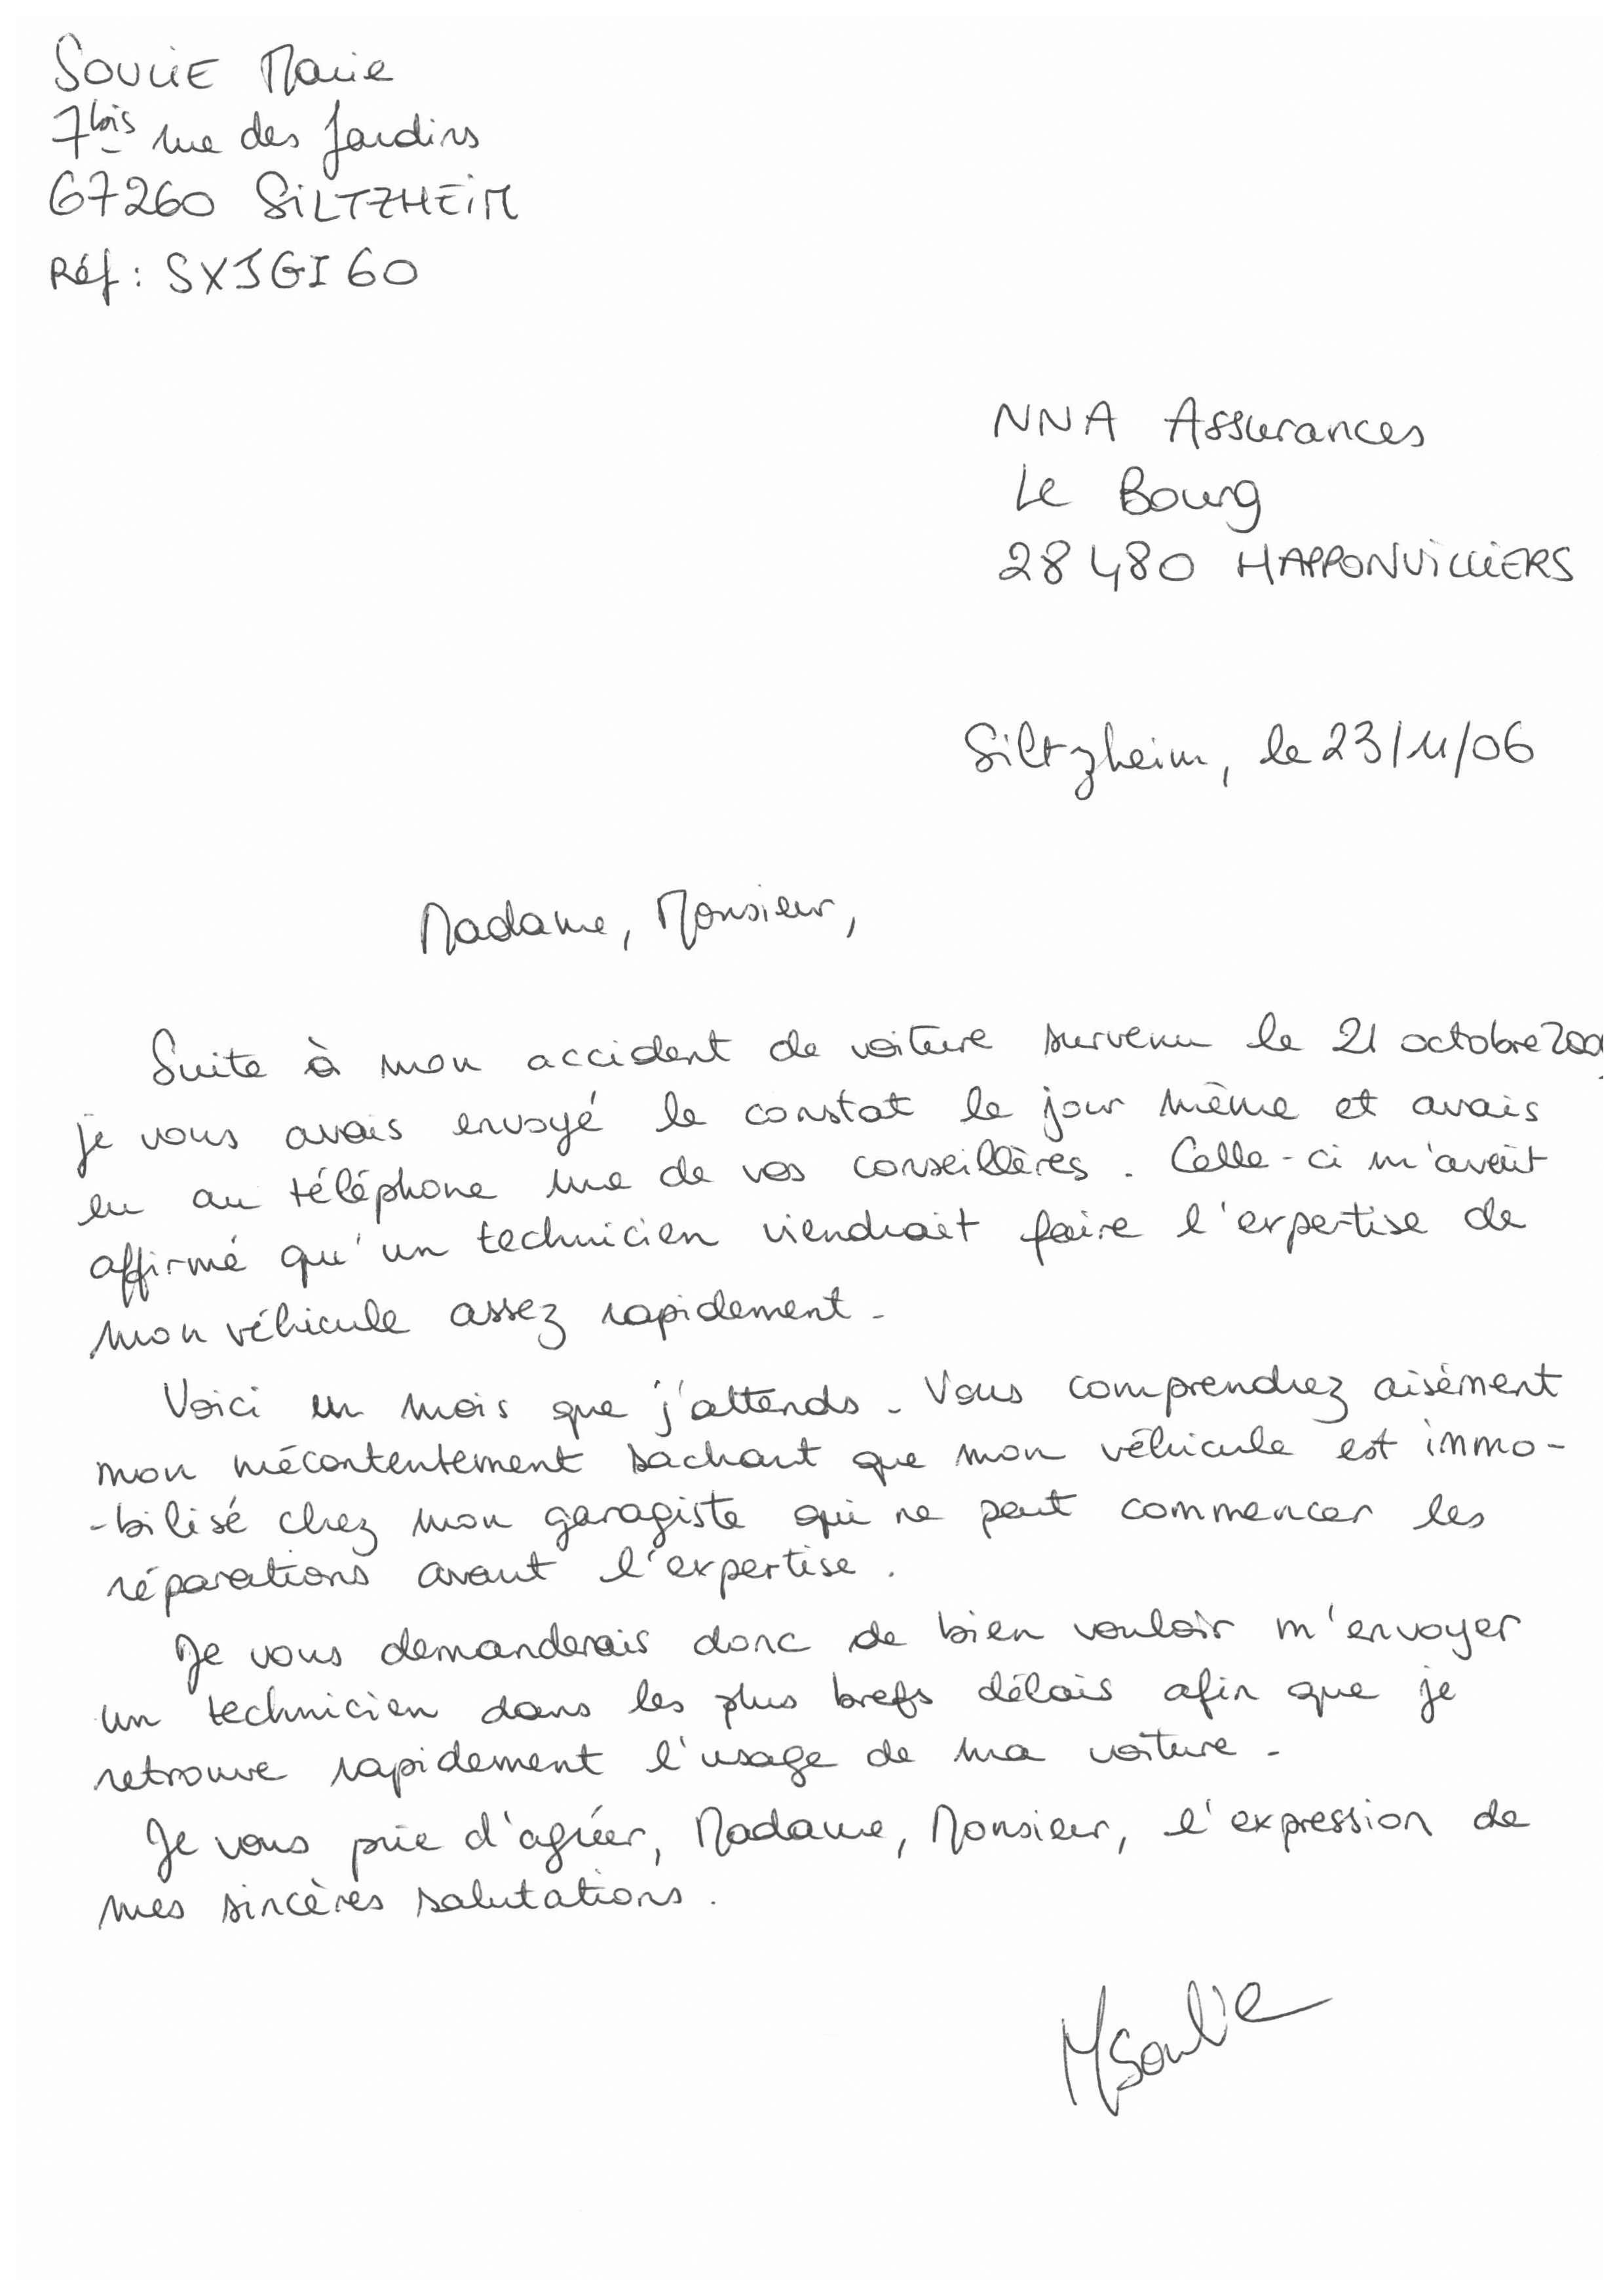 SOULIE Marie
7bis rue des Jardins
67260 SILTZHEIM
Réf : SXJGI60
NNA Assurances
Le Bourg
28480 HAPPONVILLIERS
Siltzheim, le 23/11/06
Madame, Monsieur,
Suite à mon accident de voiture survenu le 21 octobre
je vous avais envoyé le constat le jour même et avais
eu au téléphone une de vos conseillères. Celle-ci m'avait
affirmé qu'un technicien viendrait faire l'expertise de
mon véhicule assez rapidement.
Voici un mois que j'attends. Vous comprendrez aisément
mon mécontentement sachant que mon véhicule est immo-
-bilisé chez mon garagiste qui ne peut commencer les
réparations avant l'expertise.
Je vous demanderais donc de bien vouloir m'envoyer
un technicien dans les plus brefs délais afin que je
retrouve rapidement l'usage de ma voiture.
Je vous prie d'agréer, Madame, Monsieur, l'expression de
mes sincères salutations.
MSoulie